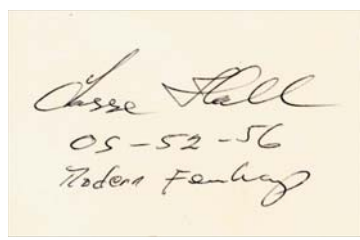 Lasse Hall
OS-52-56
Modern Femkamp